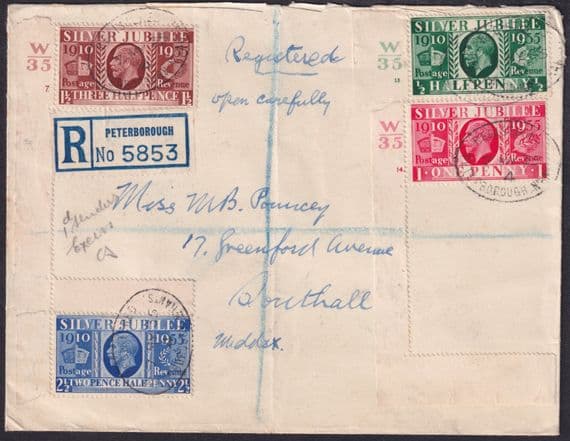 W
35
7
SILVER JUBILEE
1910
Postage Revenue
1½ THREE HALFPENCE 1½
Registered
open carefully
W
35
13
SILVER JUBILEE
1910 1935
Postage Revenue
½ HALFPENNY ½
W
35
14
SILVER JUBILEE
1910 1935
Postage Revenue
1 ONE PENNY 1
PETERBOROUGH
R No 5853
Miss M.B. Pouncey
17, Greenford Avenue
Southall
Middax.
SILVER JUBILEE
1910 1935
Postage Revenue
2½ TWO PENCE HALFPENNY 2½